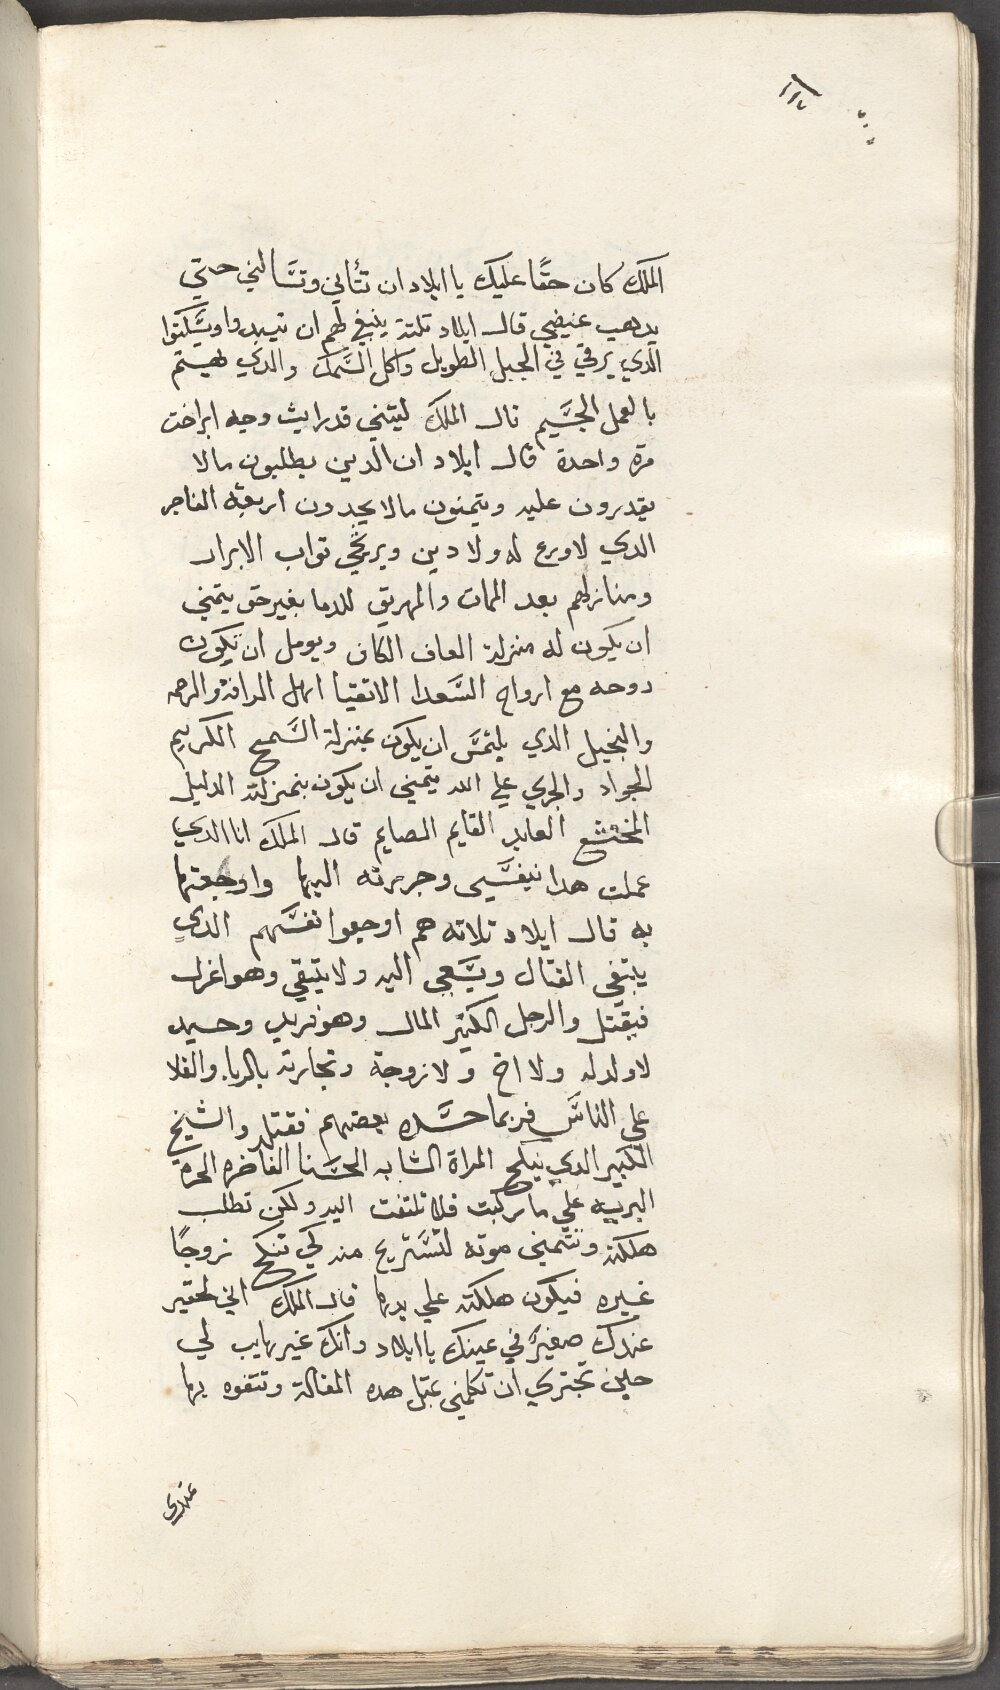 الملك كان حقًا عليك يا ايلاد ان تتأني وتسالني حتي
يدهب غيضي قال ايلاد تلتة ينبغي لهم ان تيهدوا ويسكتوا
الدي يرقي في الجبل الطويل واكل السمك والدي يهتم
بالعمل الجسيم قال الملك ليتني قد رايت وجه ابراخت
مرة واحدة قال ايلاد ان الدين يطلبون مالا
يقدرون عليه ويتمنون مالا يجدون اربعة الفاجر
الدي لا ورع له ولا دين ويرتجي تواب الابرار
ومنازلهم بعد الممات والمهريق للدما بغير حق يتمني
ان يكون له منزلة العاف الكاف ويومل ان تكون
روحه مع ارواح السعدا الاتقيا اهل الرافة والرحمه
والبخيل الدي يلتمس ان يكون بمنزلة السمح الكريم
الجواد والجري علي الله يتمني ان يكون بمنزلة الدليل
المختشع العابد القايم الصايم قال الملك انا الدي
عملت هدا بنفسي وجررته اليها واوجعتها
به قال ايلاد تلاته هم اوجعوا نفسهم الدي
يلتقي القتال ويسعي اليه ولا يتقي وهو اعزل
فيقتل والرجل الكتير المال وهو فريد وحيد
لا ولد له ولا اخ ولا زوجة وتجارته بالربا والغلا
علي الناس فربما حسده بعضهم فقتله والشيخ
الكبير الدي ينكح المراة الشابه الحسنا الفاخره الحرة
البريه علي ما ركبت فلا تلتفت اليه ولكن تطلب
هلكته وتتمني موته لتستريح منه لكي تنكح زوجًا
غيره فيكون هلكته علي يدها قال الملك اني لحقير
عندك صغير في عينك يا ايلاد وانك غير هايب لي
حين تجتري ان تكلمني بمتل هده المقالة وتتفوه بها
عندي